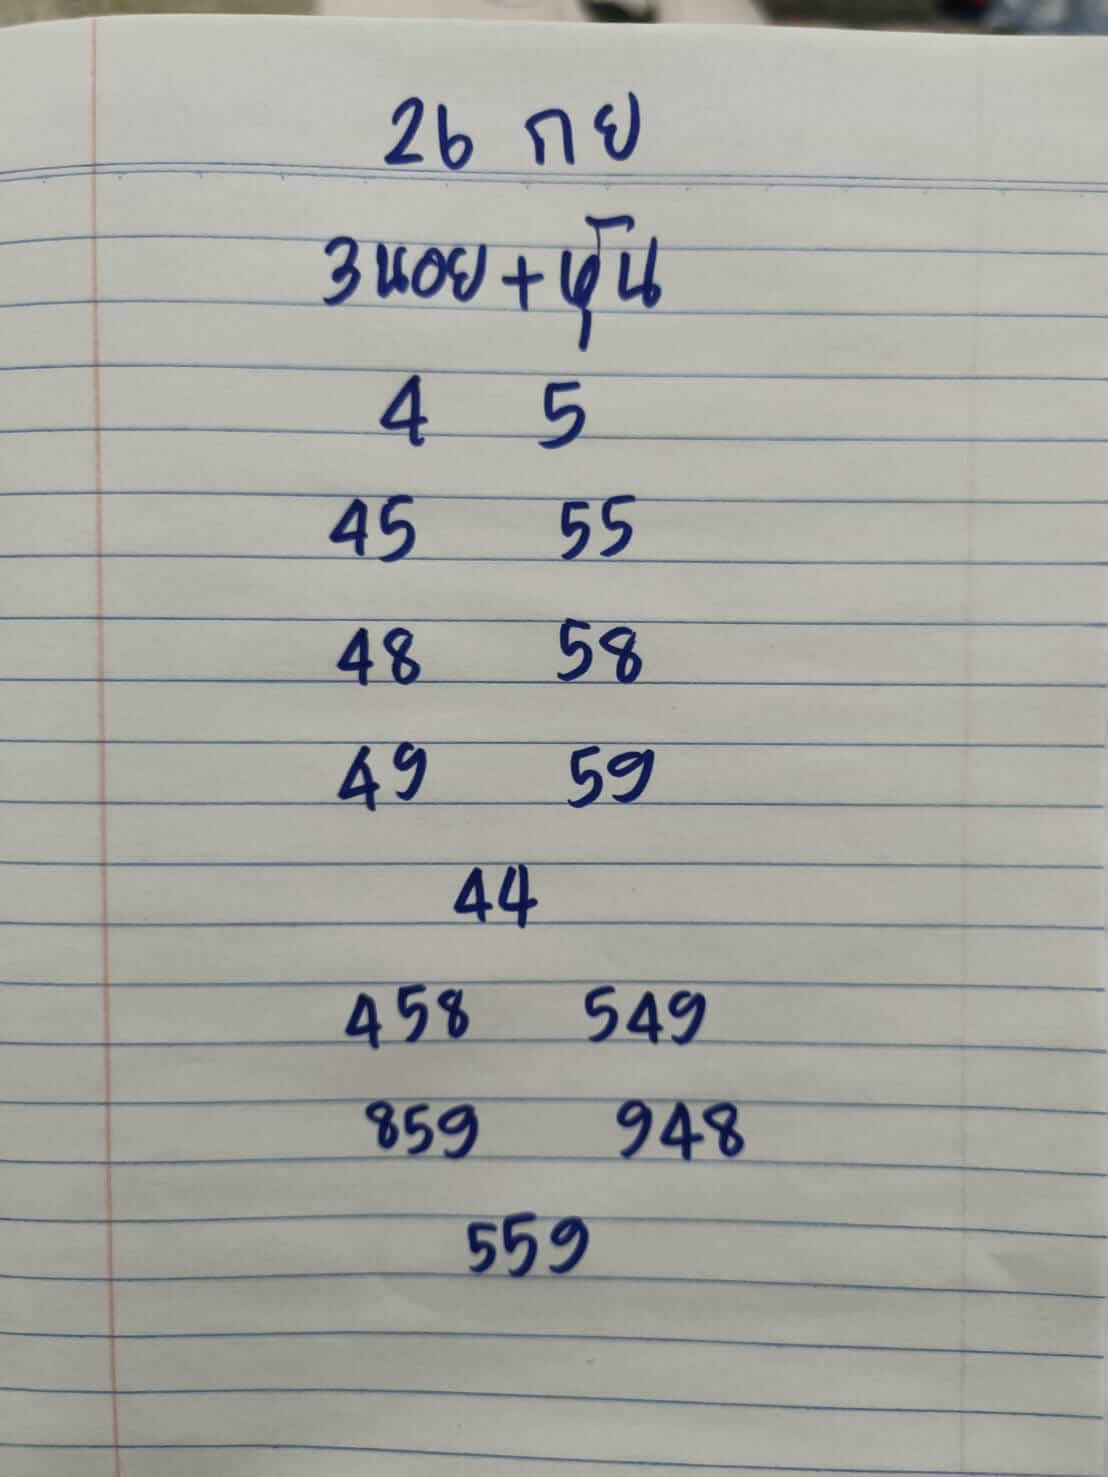 26 กย
3นอย+หุ้น
4 5
45 55
48 58
49 59
44
458 549
859 948
559